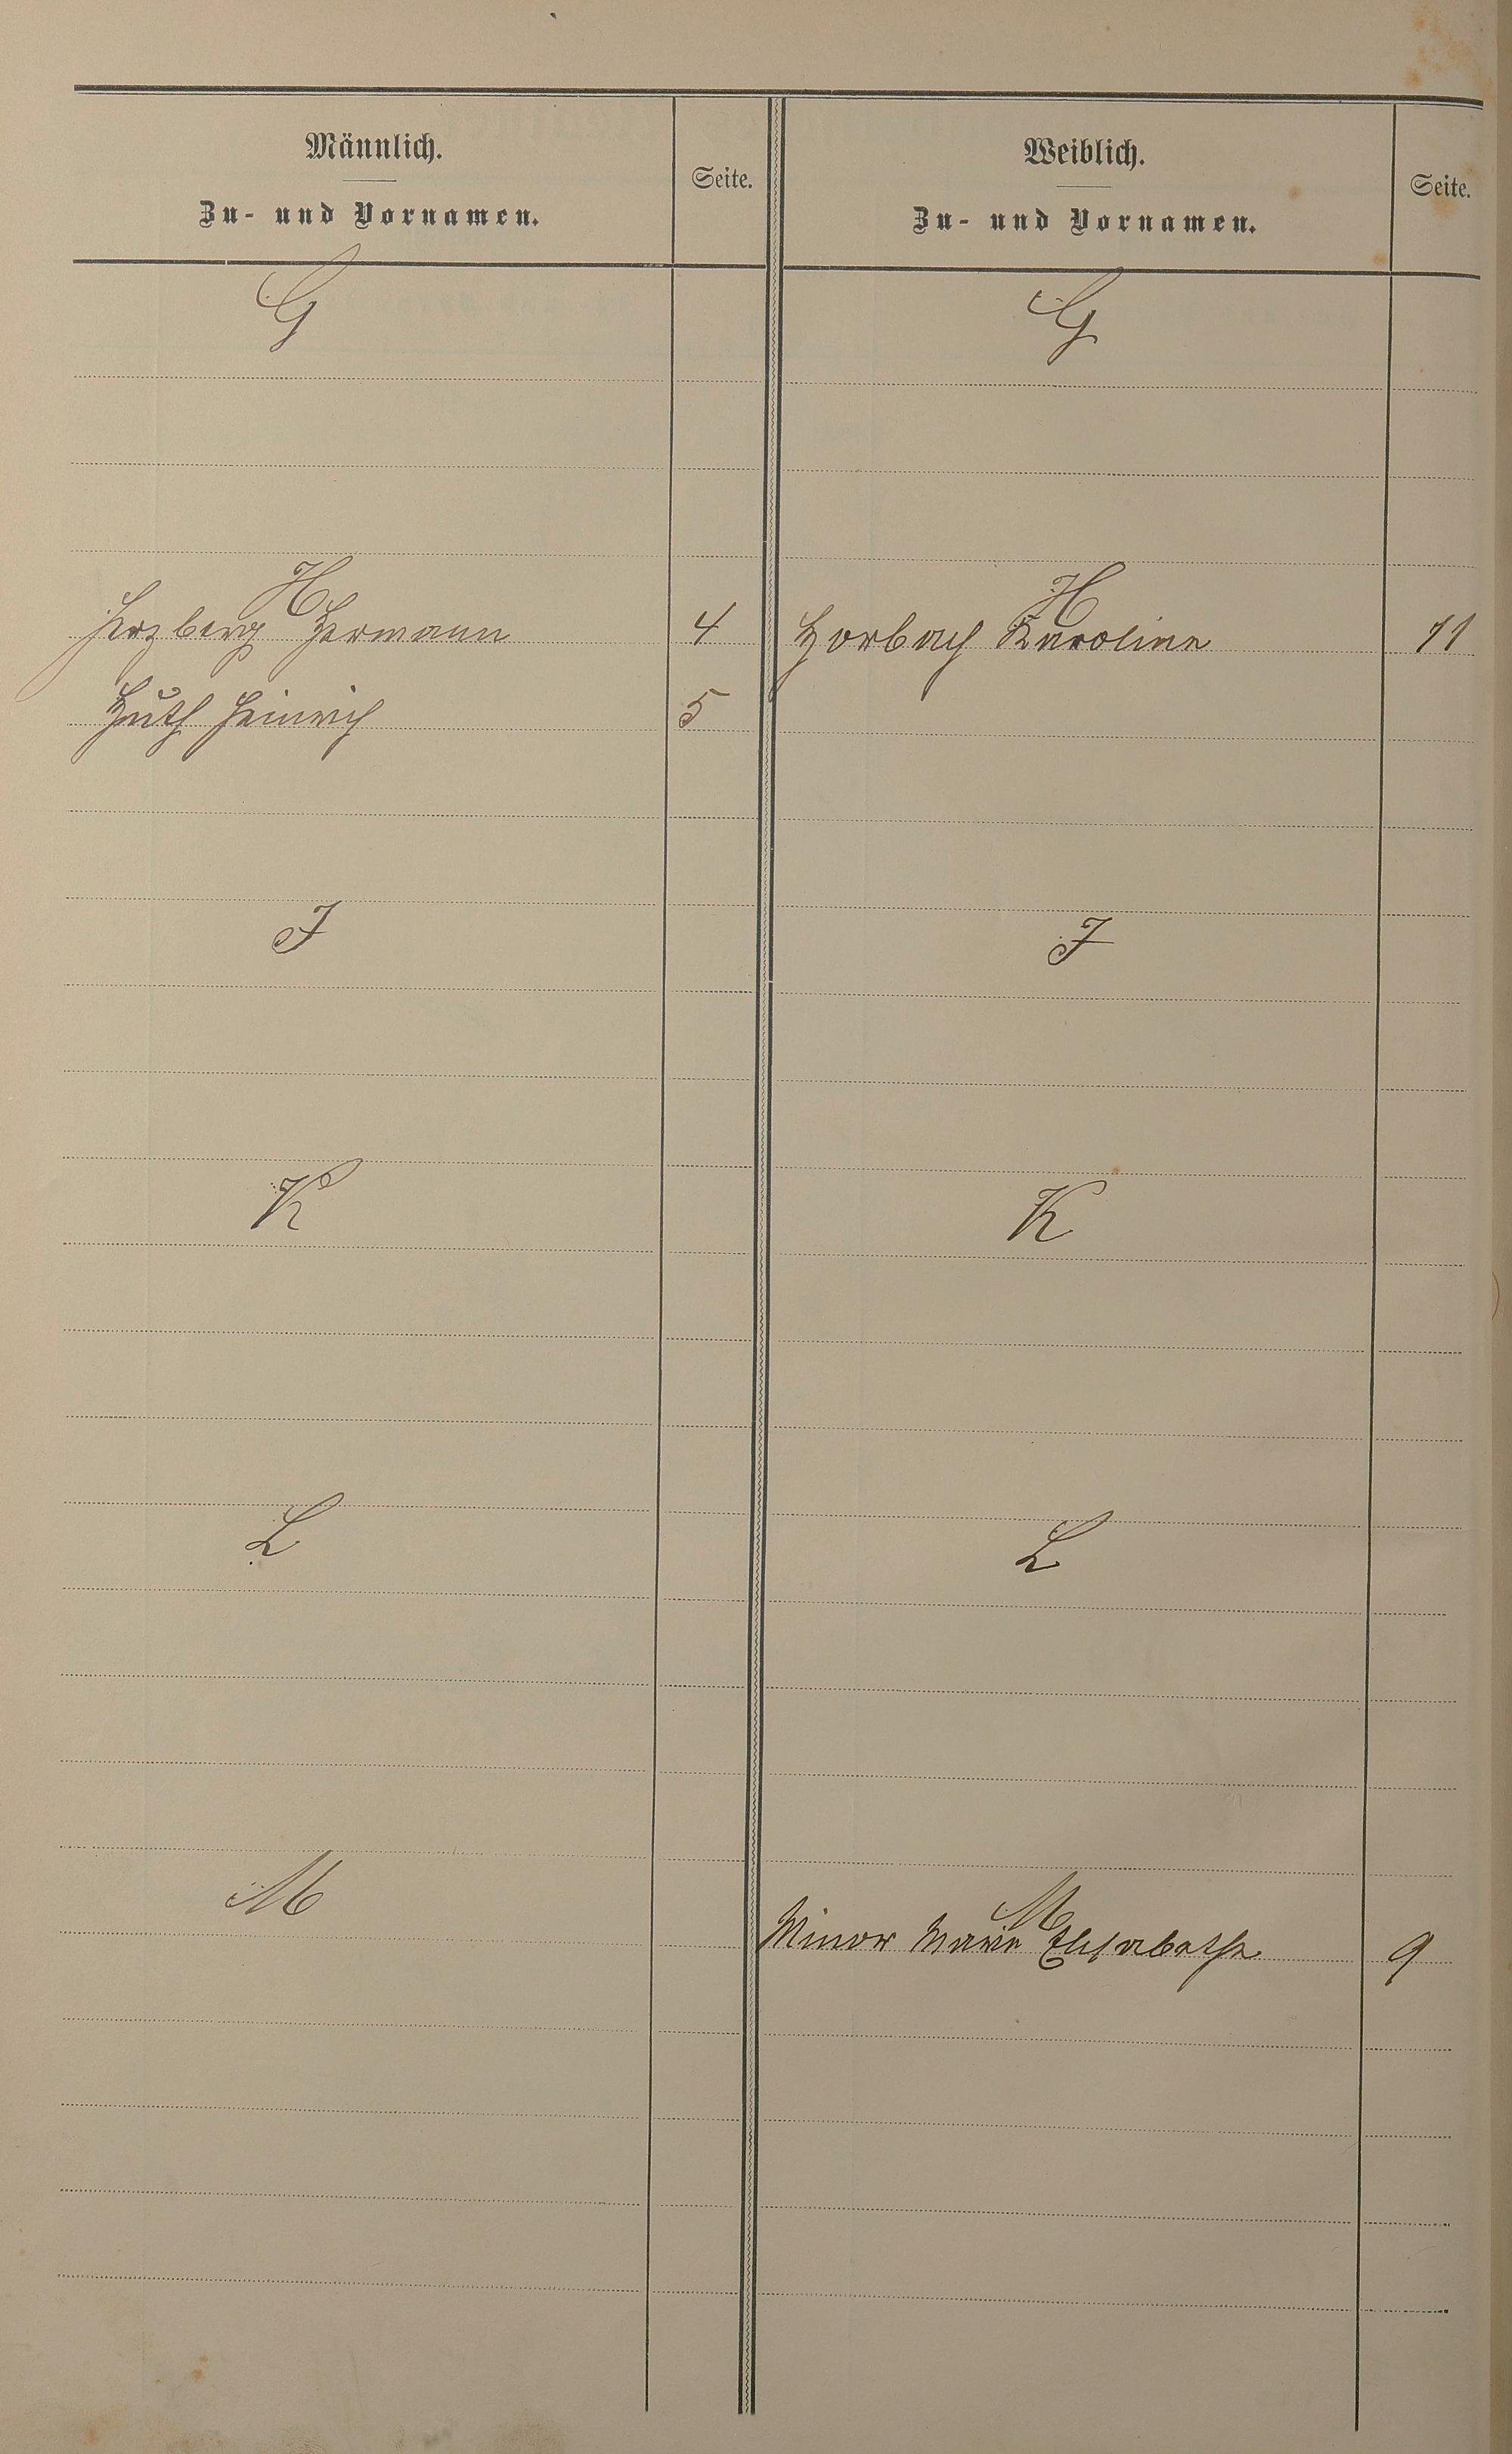 Männlich.
Zu- und Vornamen.
Seite.
Weiblich.
Zu- und Vornamen.
Seite.
G
G
H
H
Herzberg Hermann 4
Horbach Karoline 11
Huth Heinrich 5
J
J
K
K
L
L
M
M
Minor Marie Elisabethe 9